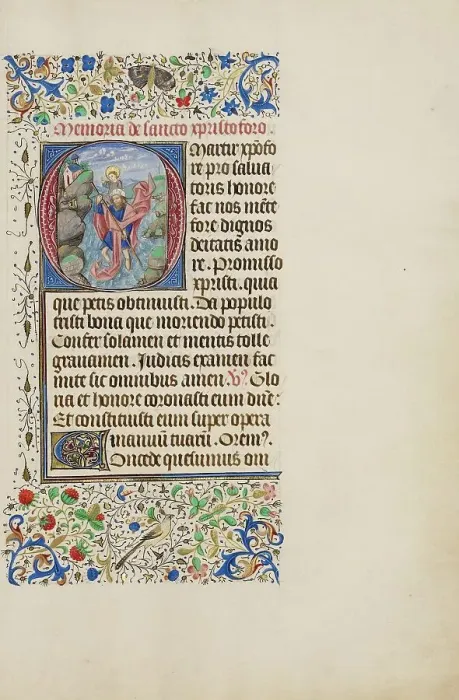 Memoria de sancto xpristoforo.
Martir xpofo
re pro salua
toris honore
fac nos mente
fore dignos
deitatis amo
re. Promisso
xpristi. quia
que petis obtinuisti. Da populo
tristi bona que moriendo petisti.
Confer solamen et mentis tolle
grauamen. Judicis examen fac
mite sit omnibus amen. V. Glo
ria et honore coronasti eum dne:
Et constituisti eum super opera
manuu tuaru. Orem.
Concede quesumus om